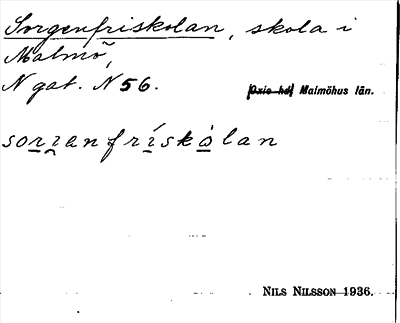 Sorgenfriskolan, skola i
Malmö,
N gat. N 56.
[Oxie hd] Malmöhus län.
sorranfrískolan
NILS NILSSON 1936.